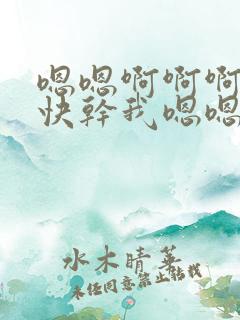 嗯嗯啊啊啊
快幹我嗯嗯
水木晴英
未任同意禁止转载